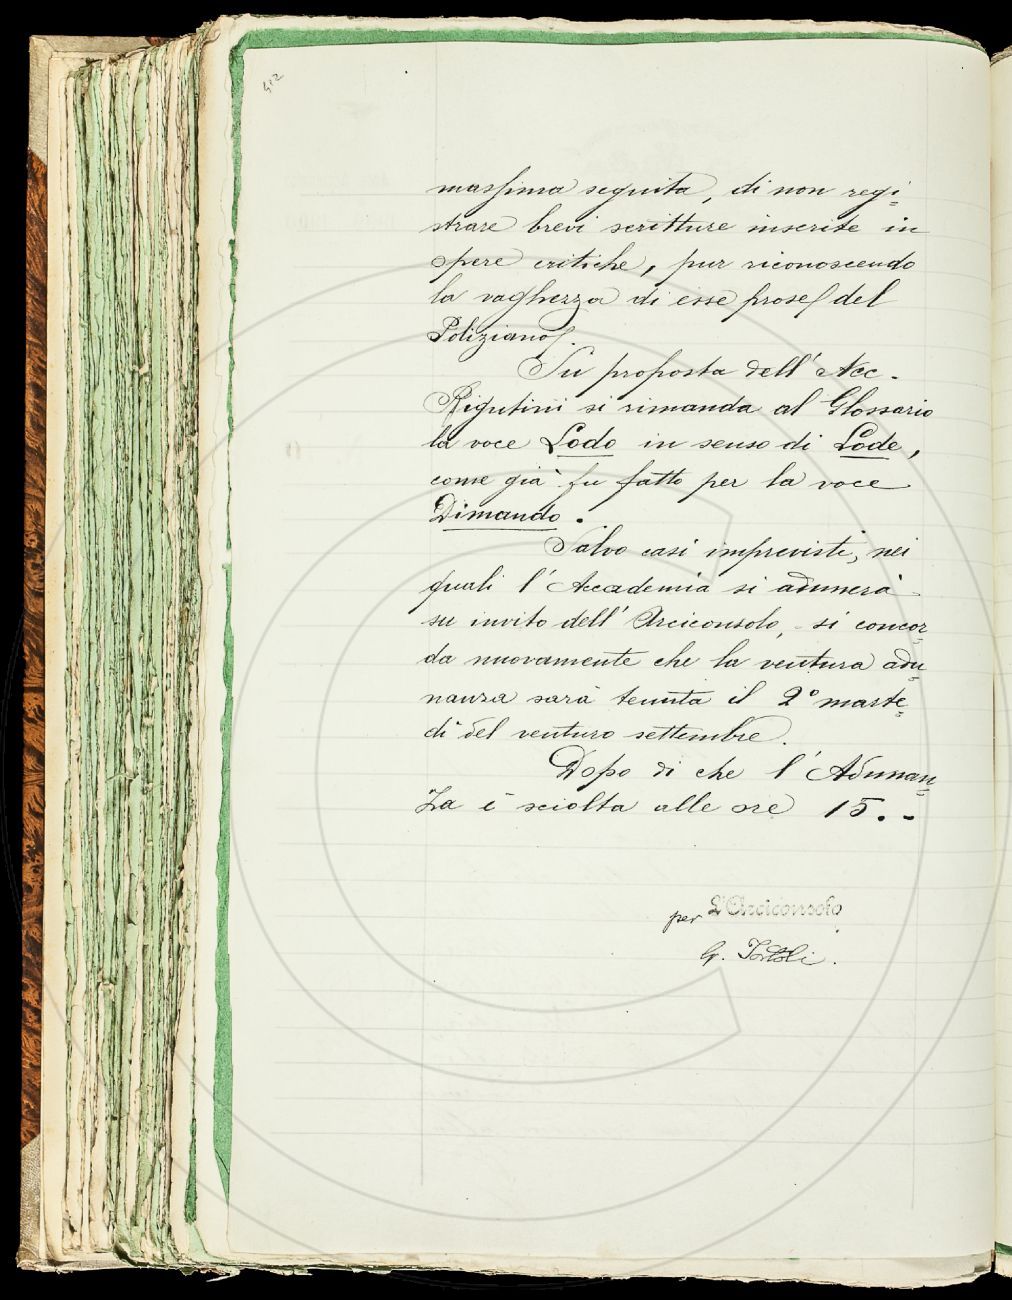 512
massima seguita, di non regi=
strare brevi scritture inserite in
opere critiche, pur riconoscendo
la vaghezza di esse prose del
Poliziano.
Su proposta dell' Acc.
Rigutini si rimanda al Glossario
la voce Lodo in senso di Lode,
come già fu fatto per la voce
Dimando.
Salvo casi imprevisti, nei
quali l' Accademia si adunerà
su invito dell' Arciconsolo, si concor=
da nuovamente che la ventura adu=
nanza sarà tenuta il 2° marte=
dì del venturo settembre.
Dopo di che l' Adunan=
za è sciolta alle ore 15.-
per L'Arciconsolo
G. Tortoli.